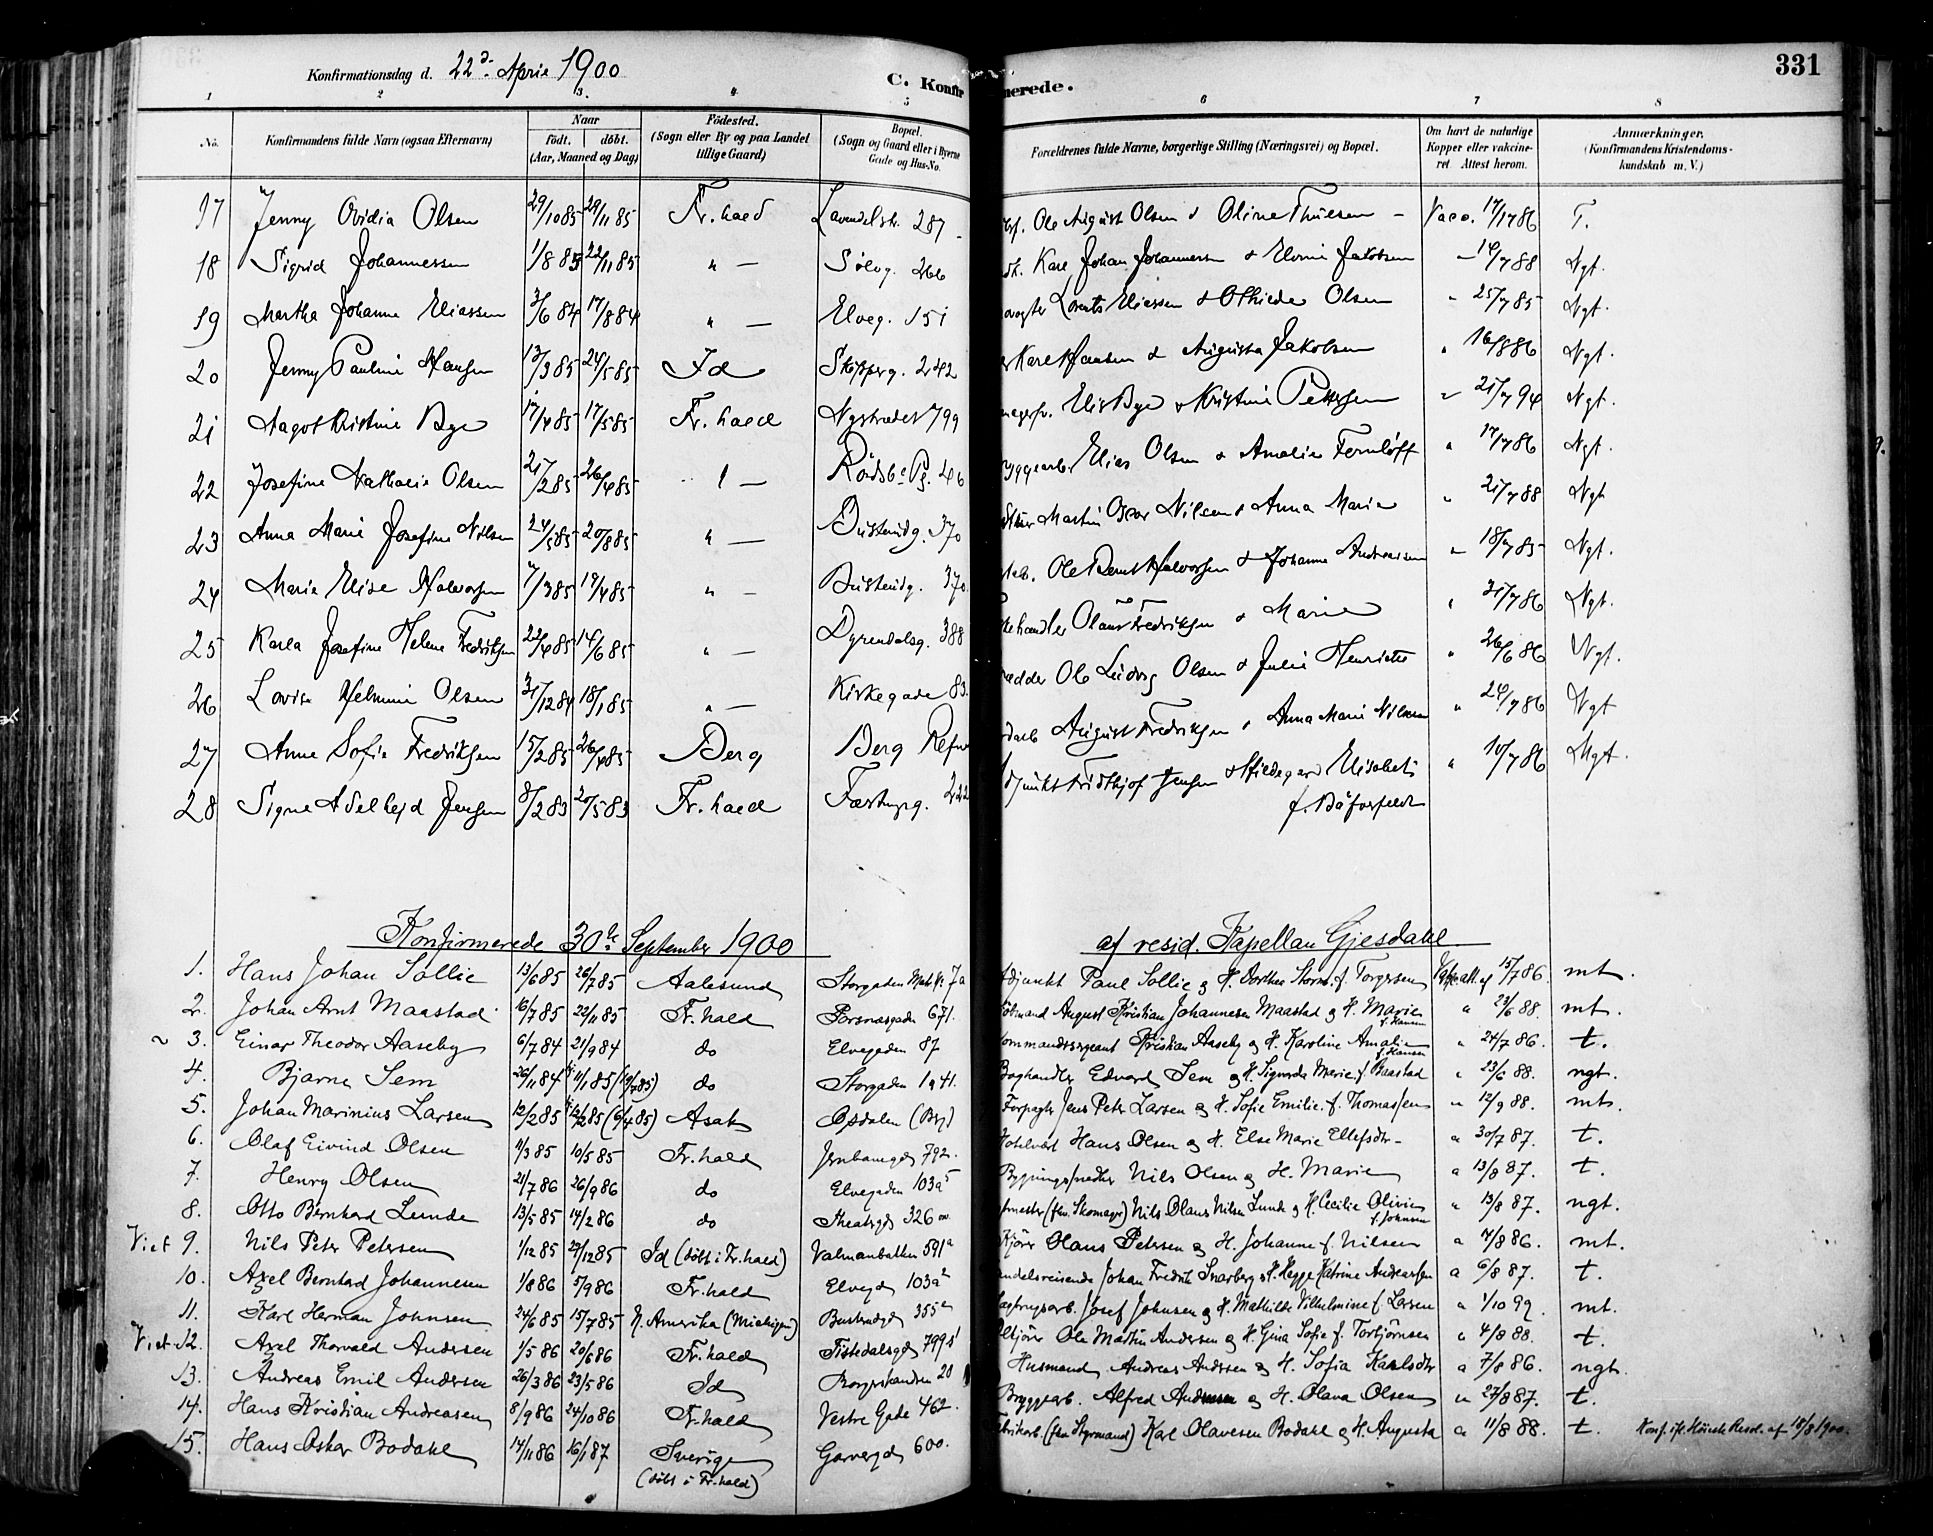 331
Konfirmationsdag d. 22d. April 1900
C. Konfirmerede.
1 2 3. 4 5 6 7 8
No. Konfirmandens fulde Navn (ogsaa Efternavn) Naar født. døbt. (Aar, Maaned og Dag) Fødested. (Sogn eller By og paa Landet tillige Gaard) Bopæl. (Sogn og Gaard eller i Byerne Gade og Hus-No. Forældrenes fulde Navne, borgerlige Stilling (Næringsvei) og Bopæl. Om havt de naturlige Kopper eller vakcineret. Attest herom. Anmærkninger. (Konfirmandens Kristendomskundskab m. V.)
17 Jenny Ovidia Olsen 29/10 85 29/11 85 Fr. hald Lavendelstr. 287 Ole August Olsen & Oline Thuesen – Vacc. 17/7 86 T.
18 Sigrid Johannessen 1/8 85 22/11 85 " — Sølvg. 266 Karl Johan Johannessen & Jakobsen 14/7 88 Ngt.
19 Martha Johanne Eliassen 3/6 84 17/8 84 " — Elveg. 151 Lorents Eliassen & Othilde Olsen " 25/7 85 Ngt.
20 Jenny Pauline Hansen 13/3 85 24/5 85 Id Skipperg. 242 Karl Hansen & Augusta Jakobsen " 16/8 86 Ngt.
21 Aagot Kristine Bye 17/4 85 17/5 85 Fr. hald Nystrædet 799 Elis Bye & Kristine Pettersen " 21/7 94 Ngt.
22 Josefine Nathalie Olsen 21/2 85 26/4 85 " — Rødsb. Pg. 46 Elias Olsen & Amalie Fernløff " 17/7 86 Ngt.
23 Anna Marie Josefine Nilsen 24/5 85 20/8 85 " — Busterudg. 370 Martin Oscar Nilsen & Anna Marie " 21/7 88 Ngt
24 Marie Elise Halvorsen 7/3 85 19/4 85 " — Busterudg. 370. Ole Bernt Halvorsen & Johanne Andreassen " 18/7 85 Ngt.
25 Karla Josefine Helene Fredriksen 22/4 85 14/6 85 " — Dyrendalsg. 388 Olaus Fredriksen & Marie " 31/7 86 Ngt.
26 Lovise Helmine Olsen 31/12 84 18/1 85 " — Kirkegade 83. Ole Ludvig Olsen & Julie Henriette " 26/6 86 Ngt.
27 Anne Sofie Fredriksen 15/2 85 26/4 85 Berg Berg August Fredriksen & Anna Marie Nilsen " 24/7 86 Ngt
28 Signe Adelhejd Jensen 8/2 83 2/5 83 Fr. hald Fæstnngsg. 222 Fridthjof Jensen & Hildegard Elisabet " 10/7 86 Mgt.
Konfirmerede 30te September 1900 af resid. Kapellan Gjesdahl.
1. Hans Johan Sollie 13/6 85 26/7 85 Aalesund Storgaden Matr No 7a Adjunkt Paul Sollie og H. Dorthea Storm f. Torgersen 15/7 86. mt.
2. Johan Arnt Maastad 16/7 85 22/11 85 Fr. hald Porsnæsgaden 671. August Kristian Johannesen Maastad og H. Marie f. Hansen " 23/6 88. mt.
3. Einar Theodor Aaseby 6/7 84 21/9 84 do Elvegaden 87 Kommandersergeant Kristian Aaseby og H. Karoline Amalie f. Hansen " 24/7 86. t.
4. Bjarne Sem 26/11 84 11/1 85 do Storgaden 1a 41. Boghandler Edvard Sem og H. Signorda Marie f. Baastad " 23/6 88. ngt.
5. Johan Marinius Larsen 12/2 85 12/2 85 (6/4 85) Asak Opdalen (Berg) Forpagter Jens Peter Larsen og H. Sofie Emilie f. Thomassen " 12/9 88. mt.
6. Olaf Eivind Olsen 11/3 85 10/5 85 Fr. hald Jernbanegd. 792. Hotelvært Hans Olsen og H. Else Marie Ellefsdtr – " 30/7 87. t.
7. Henry Olsen 21/7 86 26/9 86 do Elvegaden 103a5 Bygningssnedker Nils Olsen og H. Marie " 13/8 87. t.
8. Otto Bernhard Lunde 13/5 85 14/2 86 do Theatergd. 326 Nils Olaus Nilsen Lunde og H. Cecilie Olivie f. Johnsen " 13/8 87. ngt.
Viet 9. Nils Peter Petersen 1/12 85 27/12 85 Id (døbt i Fr.hald) Valmanbakken 591a Kjører Olaus Petersen og H. Johanne f. Nilsen " 7/8 86. mt.
10. Axel Bernhard Johannesen 1/8 86 5/9 86 Fr. hald Elvegd. 103a2 Handelsreisende Johan Fredrik Svarberg & H. Hegge Katrine Andreassen " 6/8 87. t.
11. Karl Herman Johnsen 24/6 85 15/7 85 N. Amerika (Michigan) Busterudgd. 355a Josef Johnsen og H. Mathilde Vilhelmine f. Larsen " 1/10 92. mt.
Viet 12. Axel Thorvald Andersen 1/5 86 20/6 86 Fr. hald Tistedalsgd. 799 Ole Martin Andersen og H. Gina Sofie f. Torbjørnsen " 4/8 88. t.
13. Andreas Emil Andersen 26/3 86 23/5 86 Id Borgerskansen 20 Husmand Andreas Andersen og H. Sofia Karlsdtr " 7/8 86. ngt.
14. Hans Kristian Andreasen 8/9 86 24/10 86 Fr. hald Vestre Gade 462. Bryggearb. Alfred Andresen og H. Olava Olsen " 27/8 87. t.
15. Hans Oskar Bodahl 14/11 86 16/1 87 Sverige (døbt i Fr. hald) Garvergd. 600. Fabrikarb. (før Styrmand) Karl Olavesen Bodahl og H. Augusta " 11/8 88. t. Konf. ifl. Kirch. Resol. af 18/8 1900.